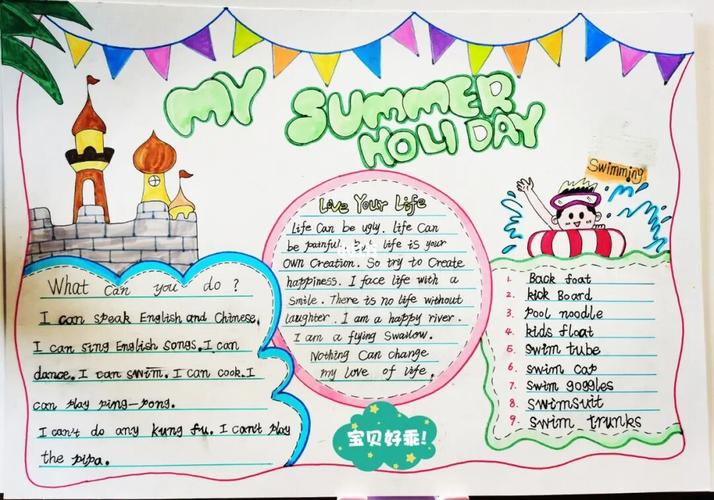 MY SUMMER
HOLIDAY
Swimming
What can you do ?
I can speak English and Chinese.
I can sing English songs. I can
dance. I can swim. I can cook. I
can play ping-pong.
I can't do any kung fu. I can't play
the pipa.
Live Your Life
Life Can be ugly. Life Can
be painful. But life is your
OWN Creation. So try to Create
happiness. I face life with a
Smile. There is no life without
laughter. I am a happy river.
I am a flying Swallow.
Nothing Can change
my love of life.
宝贝好乖!
1. Back foat
2. kick Board
3. Pool noodle
4. kids float
5. swim tube
6. swim cap
7. Swim goggles
8. swimsuit
9. swim trunks